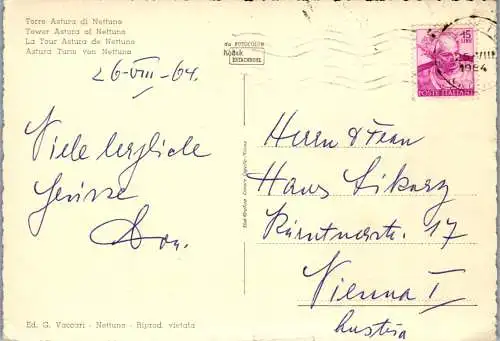 Torre Astura di Nettuno
Tower Astura of Nettuno
La Tour Astura de Nettuno
Astura Turm von Nettuno
VIA FOTOCOLOR
Kodak
EKTACHROME
15
LIRE
VIII
1964
POSTE ITALIANE
26-VIII-64.
Viele herzliche
Grüsse
Herrn & Frau
Hans
Kärntnerstr. 17
Vienna I
Austria
Ed. G. Vaccari - Nettuno - Riprod. vietata